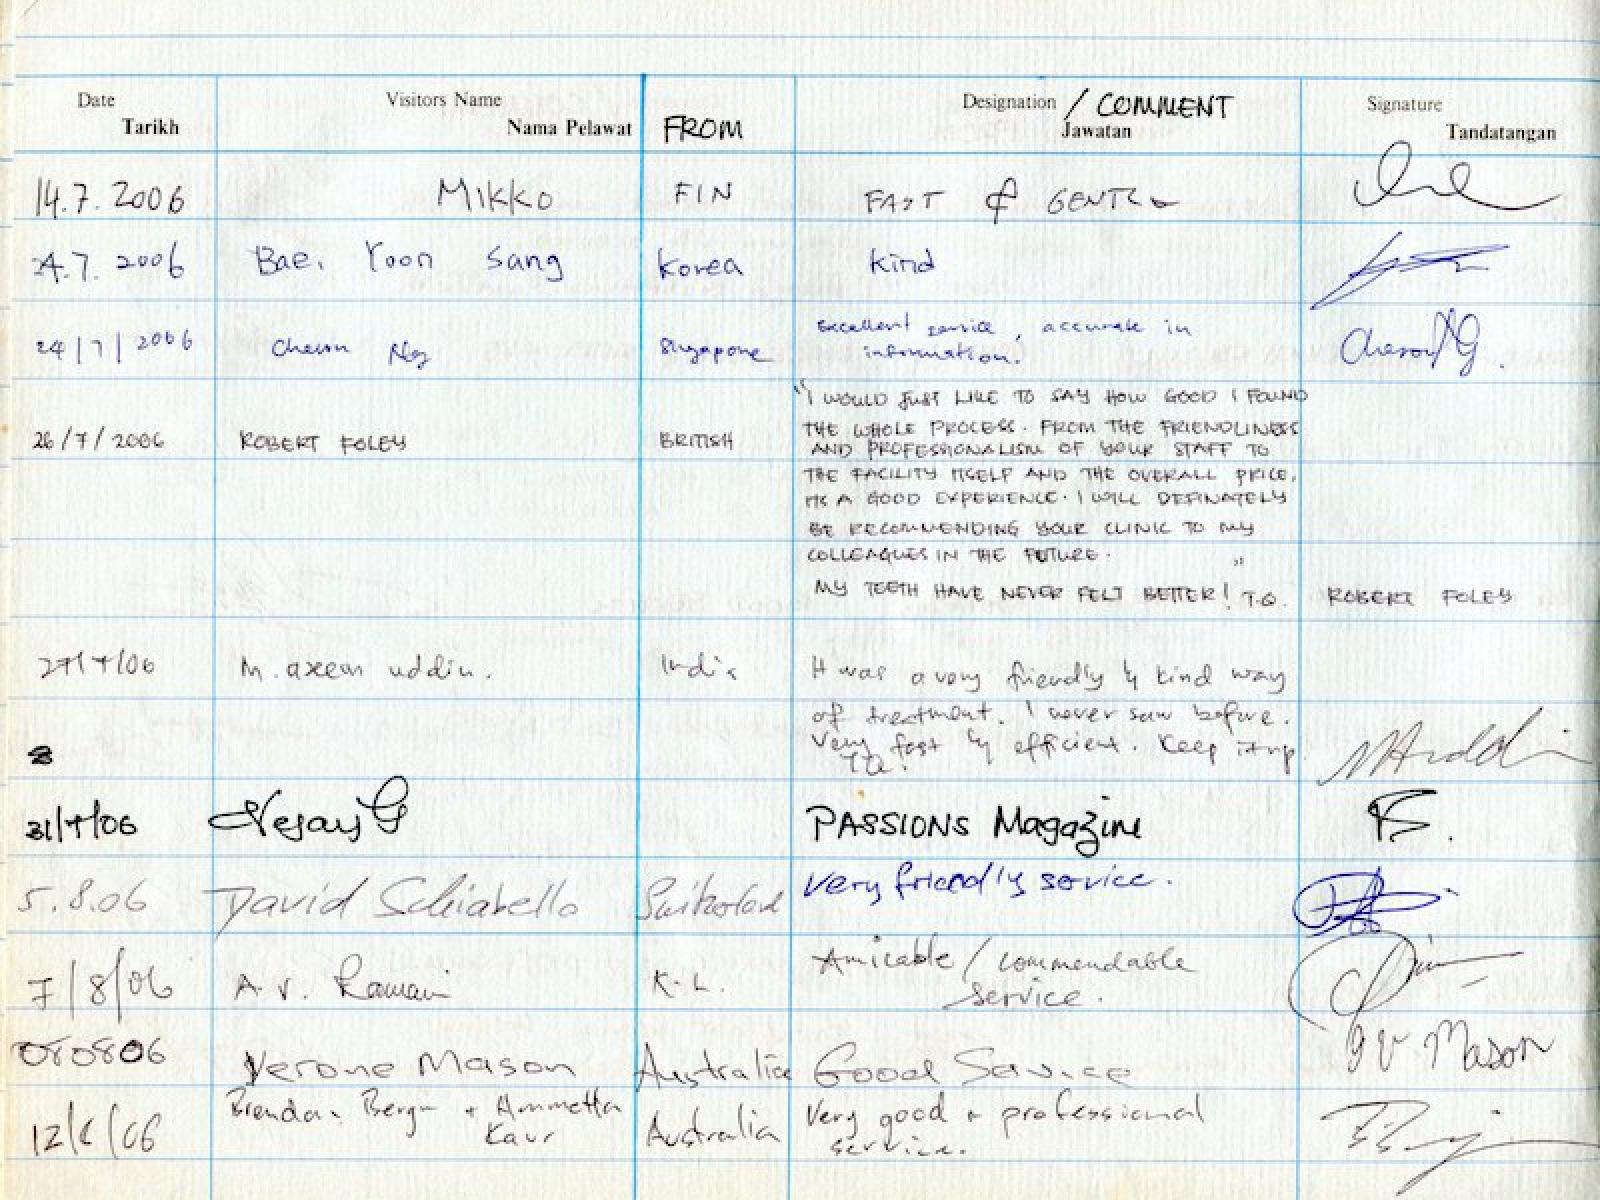 Date Visitors Name Designation / COMMENT Signature
Tarikh Nama Pelawat FROM Jawatan Tandatangan
14.7.2006 MIKKO FIN FAST & GENTLE
24.7.2006 Bae, Yoon Sang Korea kind
24/7/2006 Ng Singapore Excellent service, accurate in
information.
"I WOULD JUST LIKE TO SAY HOW GOOD I FOUND
26/7/2006 ROBERT FOLEY BRITISH THE WHOLE PROCESS. FROM THE FRIENDLINESS
AND PROFESSIONALISM OF YOUR STAFF TO
THE FACILITY ITSELF AND THE OVERALL PRICE,
ITS A GOOD EXPERIENCE. I WILL DEFINATELY
BE RECOMMENDING YOUR CLINIC TO MY
COLLEAGUES IN THE FUTURE. "
MY TEETH HAVE NEVER FELT BETTER! T.Q. ROBERT FOLEY
27/7/06 M. azeem uddin. India It was a very friendly & kind way
of treatment. I never saw before.
Very fast & efficient. Keep it up
TQ.
31/7/06 PASSIONS Magazine
5.8.06 David Schiabello Switzerland Very friendly service.
7/8/06 A.V. Raman K.L. Amicable / commendable
service.
080806 Verone Mason Australia Good Service V Mason
12/8/06 Brendan Berge + Ammetta
Kaur Australia Very good + professional
service.